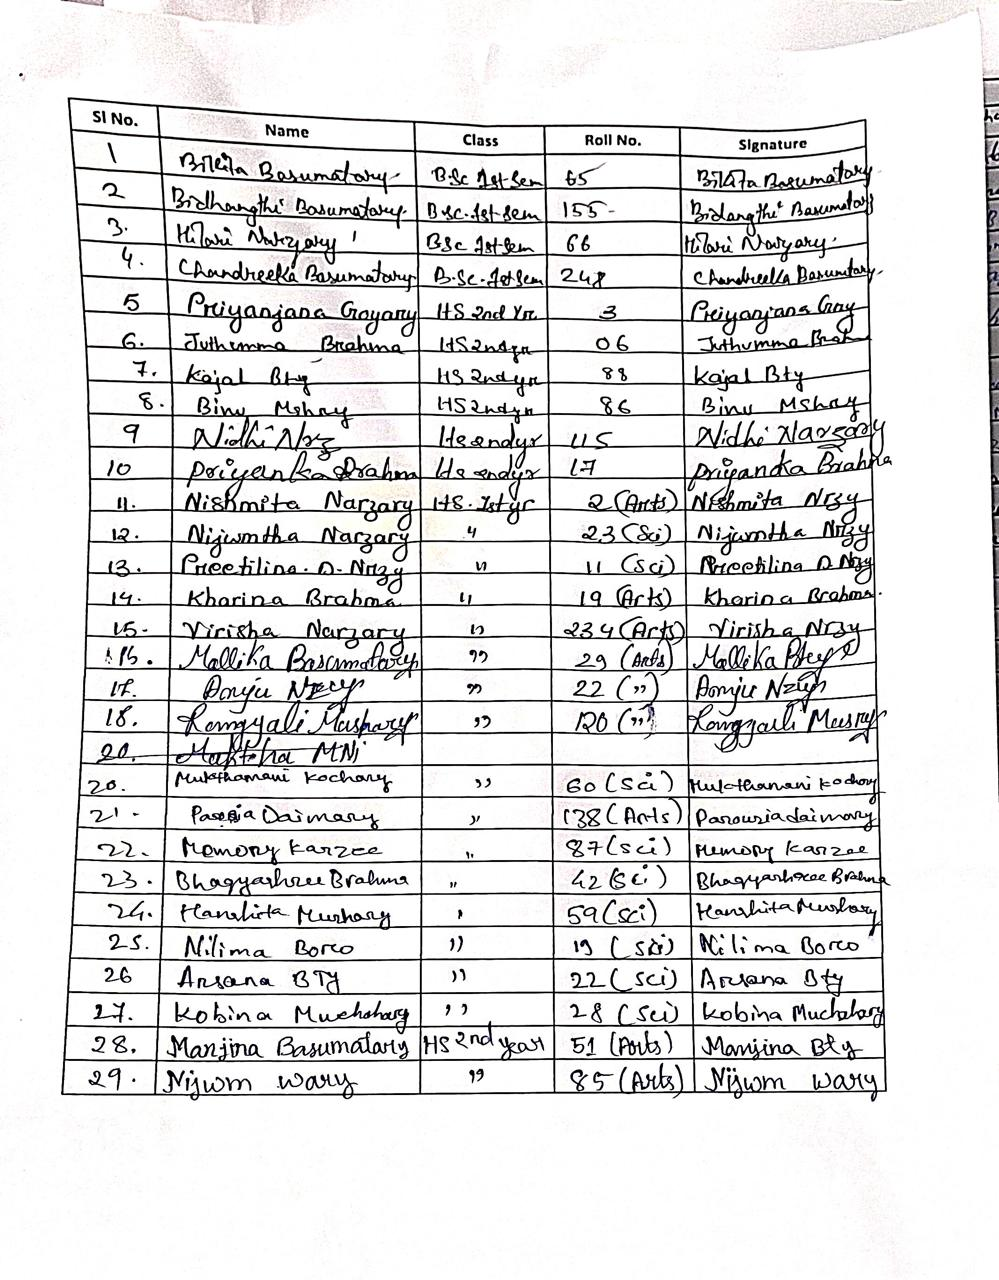 Sl No. Name Class Roll No. Signature
1 Bikita Basumatary B.Sc 1st Sem 65 Bikita Basumatary
2 Bidhangthi Basumatary B.sc. 1st sem 155 Bidangthi Basumatary
3. Hilari Narzary BSc 1st Sem 66 Hilari Narzary
4. Chandreeka Basumatary B.Sc. 1st Sem 248 Chandreeka Basumatary
5 Priyanjana Goyary HS 2nd Yr 3 Priyanjana Goy
6. Juthumma Brahma HS 2nd yr 06 Juthumma Brah
7. Kajal Bty HS 2nd yr 88 Kajal Bty
8. Binu Mshry HS 2nd yr 86 Binu Mshry
9 Nidhi Nrz Hs 2nd yr 115 Nidhi Narzary
10 Priyanka Brahma Hs 2nd yr 17 Priyanka Brahma
11. Nishmita Narzary HS. 1st yr 2 (Arts) Nishmita Nrzy
12. Nijwmtha Narzary " 23 (Sci) Nijwmtha Nrzy
13. Preetilina. D. Nrzy " 11 (Sci) Preetilina D Nrzy
14. Kharina Brahma " 19 (Arts) Kharina Brahma.
15. Virisha Narzary " 234 (Arts) Virisha Nrzy
16. Mallika Basumatary " 29 (Arts) Mallika
17. Nzry " 22 (") Nzry
18. Mushary " 120 (")
20. MNi
20. Mukthamani Kochary " 60 (Sci) Mukthamani Kochary
21. Daimary " 138 (Arts) Parousia daimary
22. Memory Karzee " 87 (sci) Memory Karzee
23. Bhagyashree Brahma " 42 (Sci) Bhagyashree Brahma
24. Hanshita Mushary " 59 (sci) Hanshita Mushary
25. Nilima Boro " 19 (sci) Nilima Boro
26 Arsana BTY " 22 (sci) Arsana Bty
27. Kobina Muchahary " 28 (Sci) Kobina Muchahary
28. Manjina Basumatary HS 2nd year 51 (Arts) Manjina Bty
29. Nijwm wary " 85 (Arts) Nijwm wary